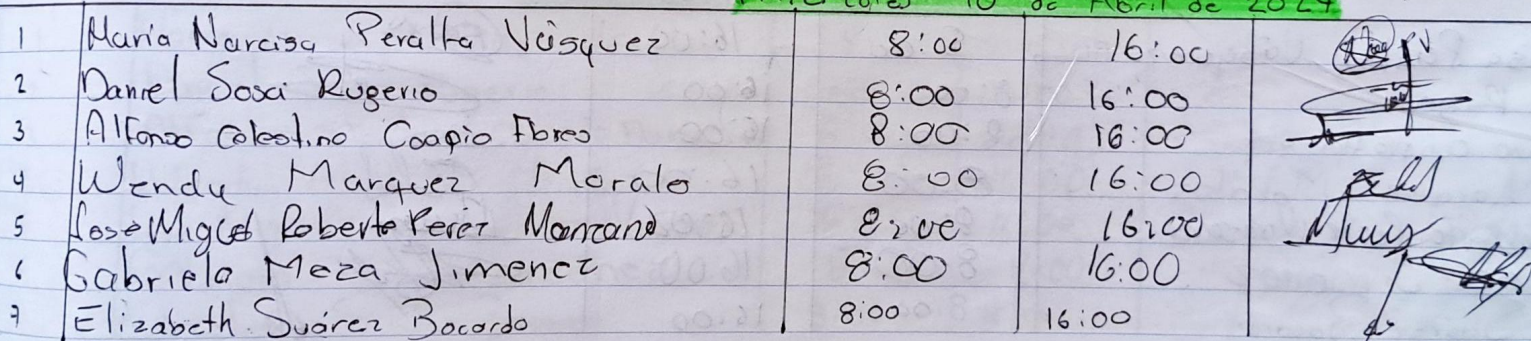 10 de Abril de 2024
1 Maria Narcisa Peralta Vásquez 8:00 16:00
2 Daniel Sosa Rugerio 8:00 16:00
3 Alfonso Celestino Coapio Flores 8:00 16:00
4 Wendy Marquez Morale 8:00 16:00
5 José Miguel Roberto Perez Manzano 8:00 16:00
6 Gabriela Meza Jimenez 8:00 16:00
7 Elizabeth Suárez Bocardo 8:00 16:00